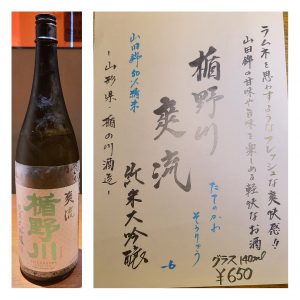 爽流
楯野川
純米大吟醸
ラムネを思わすようなフレッシュな爽快感!!
山田錦の甘味や旨味を楽しめる軽快なお酒
楯野川
たてのかわ
爽流
そうりゅう
純米大吟醸
山田錦50%精米
～山形県・楯の川酒造～
-6
グラス140ml
¥650